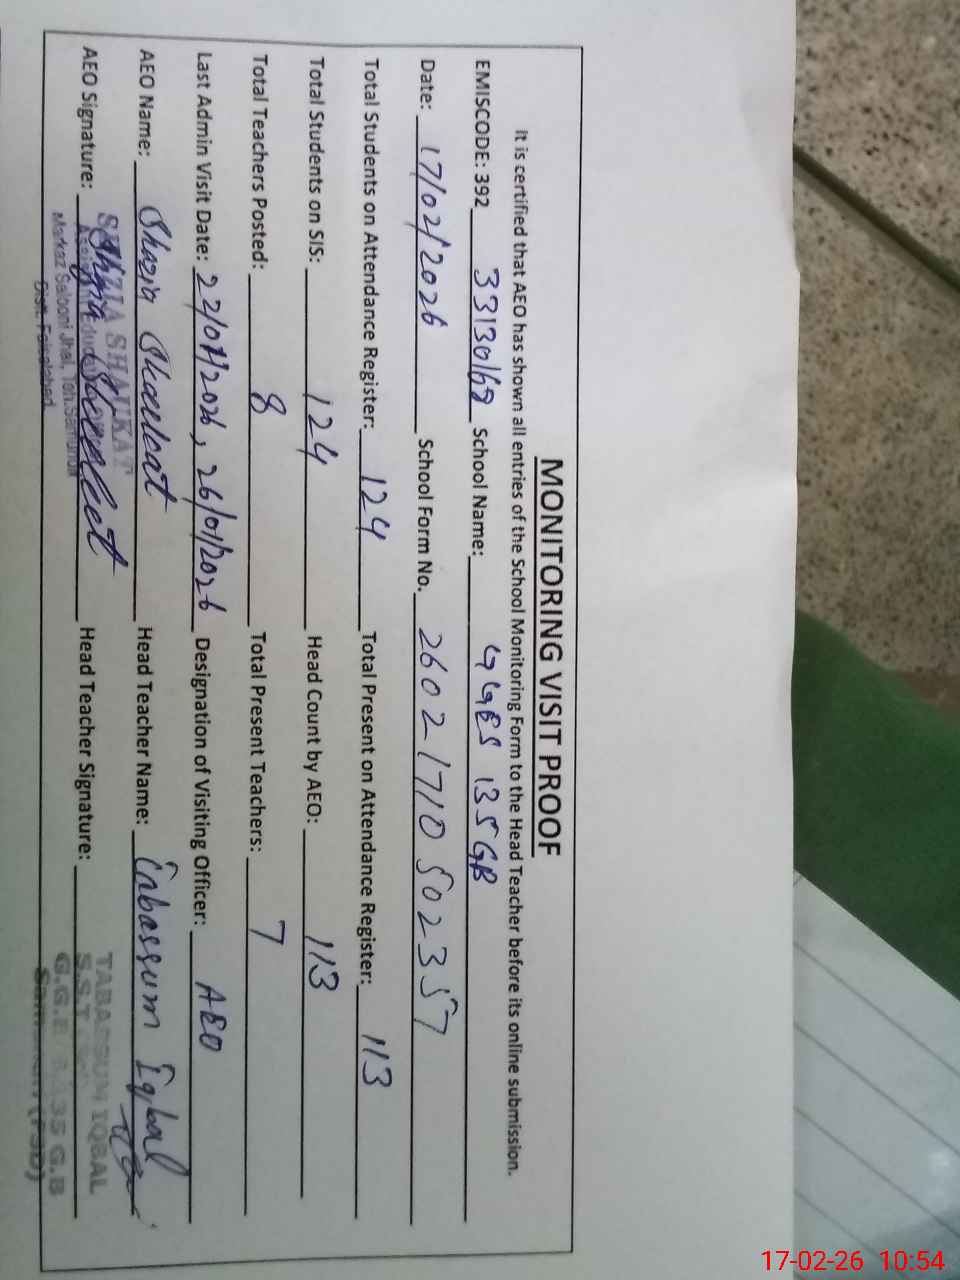 MONITORING VISIT PROOF
It is certified that AEO has shown all entries of the School Monitoring Form to the Head Teacher before its online submission.
EMISCODE: 392 33130168 School Name: GGES 135 GB
Date: 17/02/2026 School Form No. 26021710502357
Total Students on Attendance Register: 124 Total Present on Attendance Register: 113
Total Students on SIS: 124 Head Count by AEO: 113
Total Teachers Posted: 8 Total Present Teachers: 7
Last Admin Visit Date: 22/01/2026, 26/01/2026 Designation of Visiting Officer: AEO
AEO Name: Shazia Shaukat Head Teacher Name: Tabassum Iqbal
AEO Signature: Shazia Shaukat Head Teacher Signature:
SHAZIA SHAUKAT
Markaz Salooni Jhal, Teh. Samundri
Distt. Faisalabad
TABASSUM IQBAL
S.S.T
G.G.E 135 G.B
17-02-26 10:54